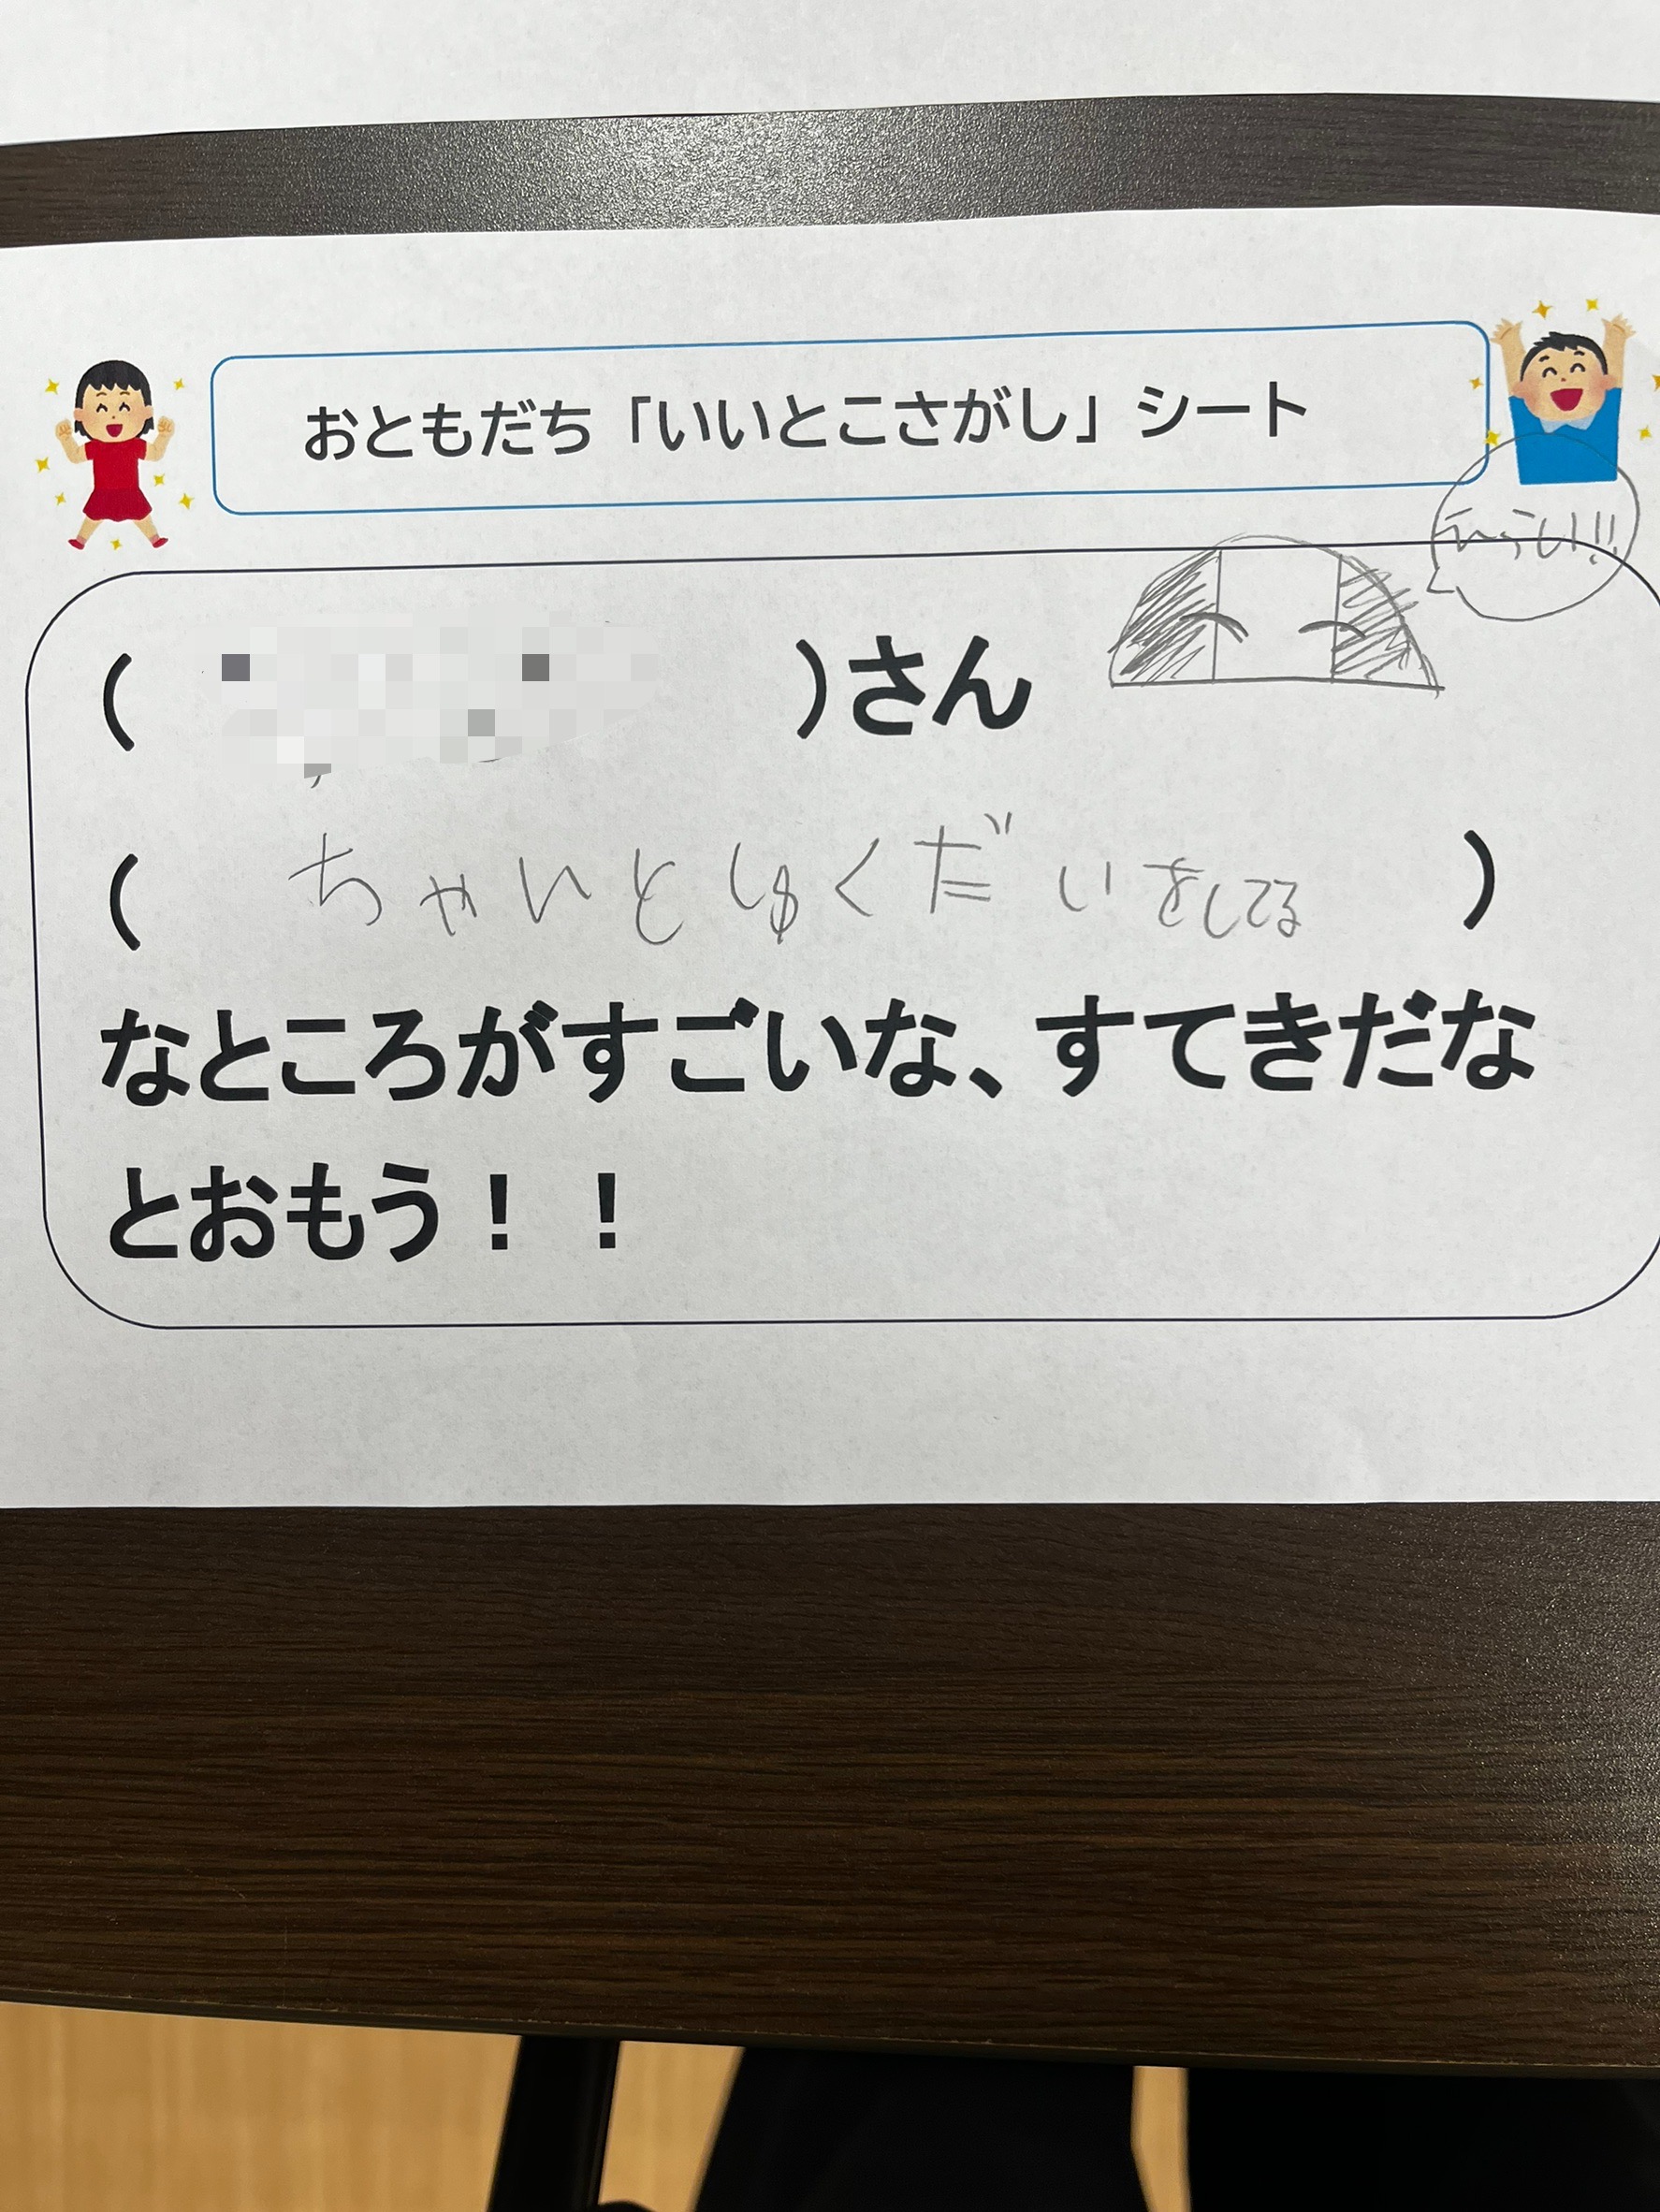 おともだち「いいとこさがし」シート
( )さん
( ちゃんとしゅくだいをしてる )
なところがすごいな、すてきだな
とおもう！！